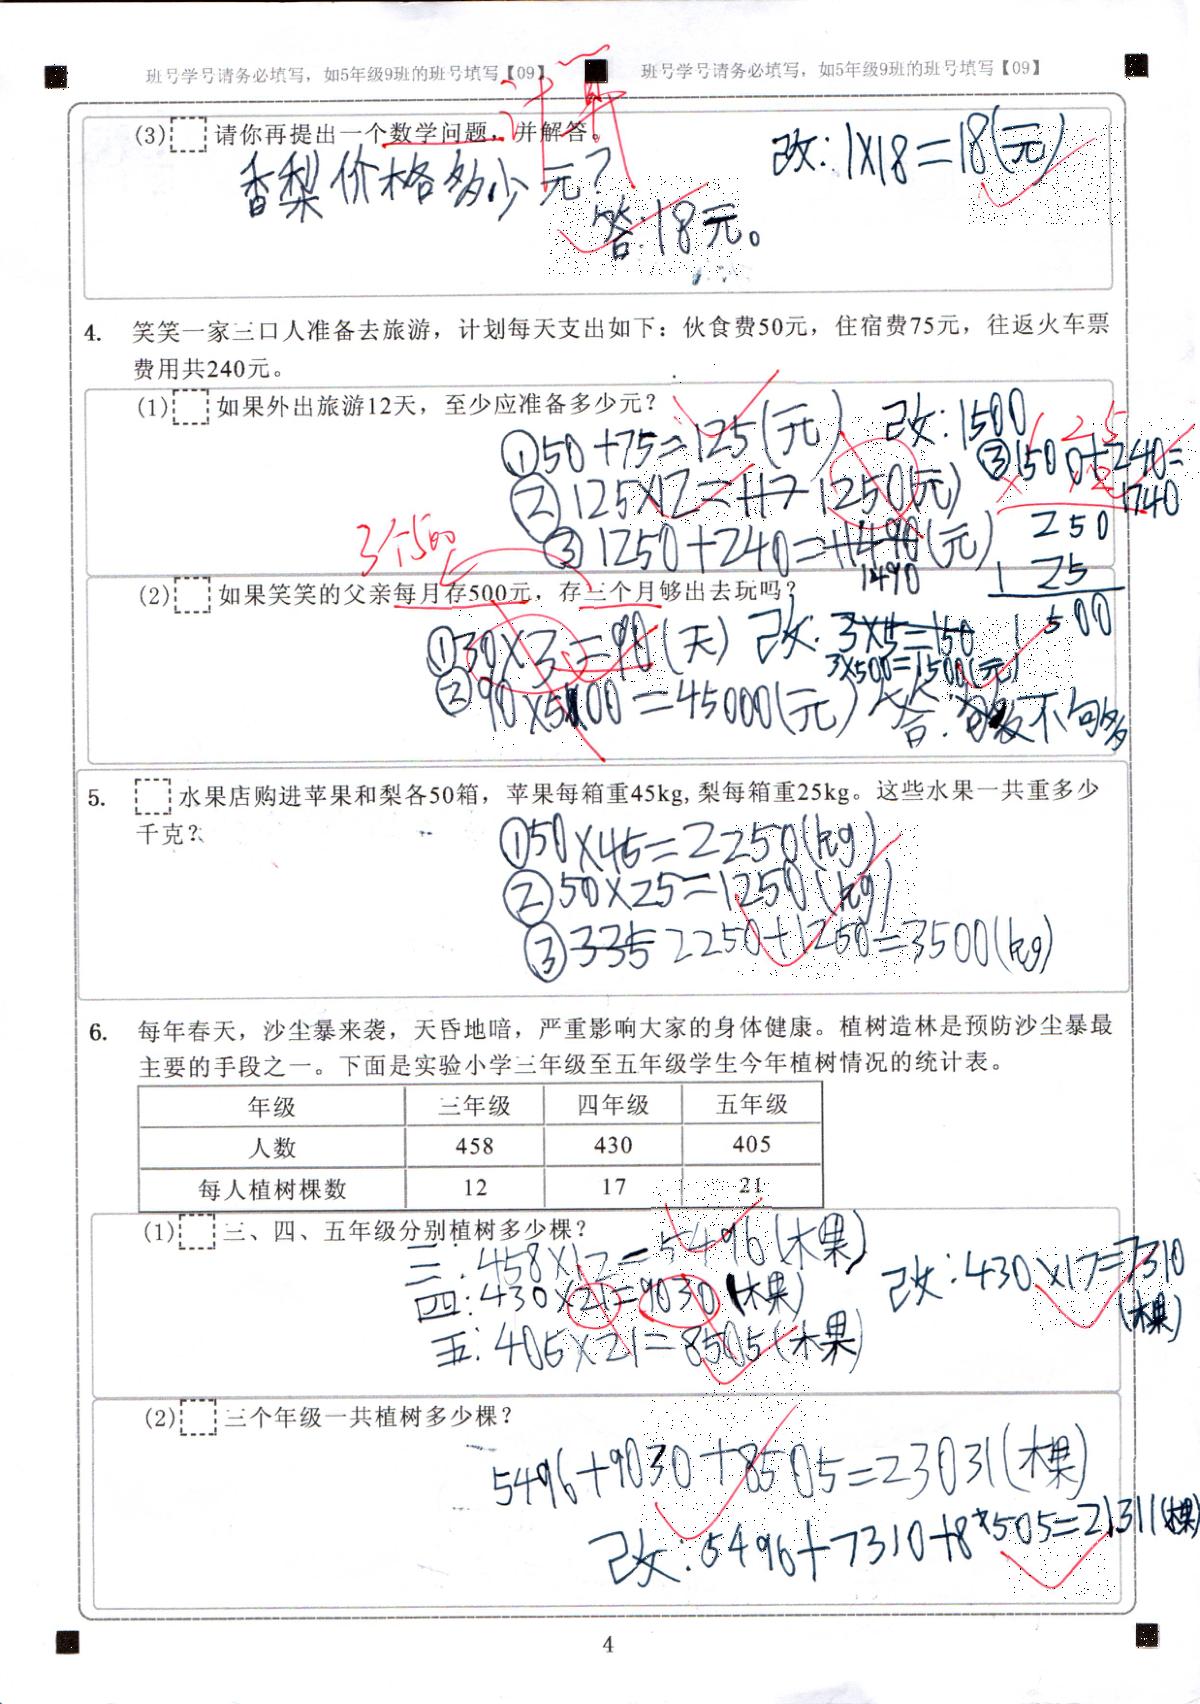 班号学号请务必填写，如5年级9班的班号填写【09】
班号学号请务必填写，如5年级9班的班号填写【09】
计算
(3) 请你再提出一个数学问题，并解答。
香梨价格多少元？
答：18元。
改：1×18=18(元)
4. 笑笑一家三口人准备去旅游，计划每天支出如下：伙食费50元，住宿费75元，往返火车票
费用共240元。
(1) 如果外出旅游12天，至少应准备多少元？
①50+75=125(元)
②125×12=117 1250(元)
③1250+240=1490(元)
1490
改：1500
③1500+240=
1740
125
×12
250
125
1500
3个500
(2) 如果笑笑的父亲每月存500元，存三个月够出去玩吗？
①30×3=90(天)
②90×500=45000(元)
改：3×5=150
3×500=1500(元)
答：不够
5. 水果店购进苹果和梨各50箱，苹果每箱重45kg, 梨每箱重25kg。这些水果一共重多少
千克？
①50×45=2250(kg)
②50×25=1250(kg)
③335 2250+1250=3500(kg)
6. 每年春天，沙尘暴来袭，天昏地暗，严重影响大家的身体健康。植树造林是预防沙尘暴最
主要的手段之一。下面是实验小学三年级至五年级学生今年植树情况的统计表。
年级 三年级 四年级 五年级
人数 458 430 405
每人植树棵数 12 17 21
(1) 三、四、五年级分别植树多少棵？
三：458×12=5496(棵)
四：430×21=9030(棵)
五：405×21=8505(棵)
改：430×17=7310
(棵)
(2) 三个年级一共植树多少棵？
5496+9030+8505=23031(棵)
改：5496+7310+8505=21311(棵)
4